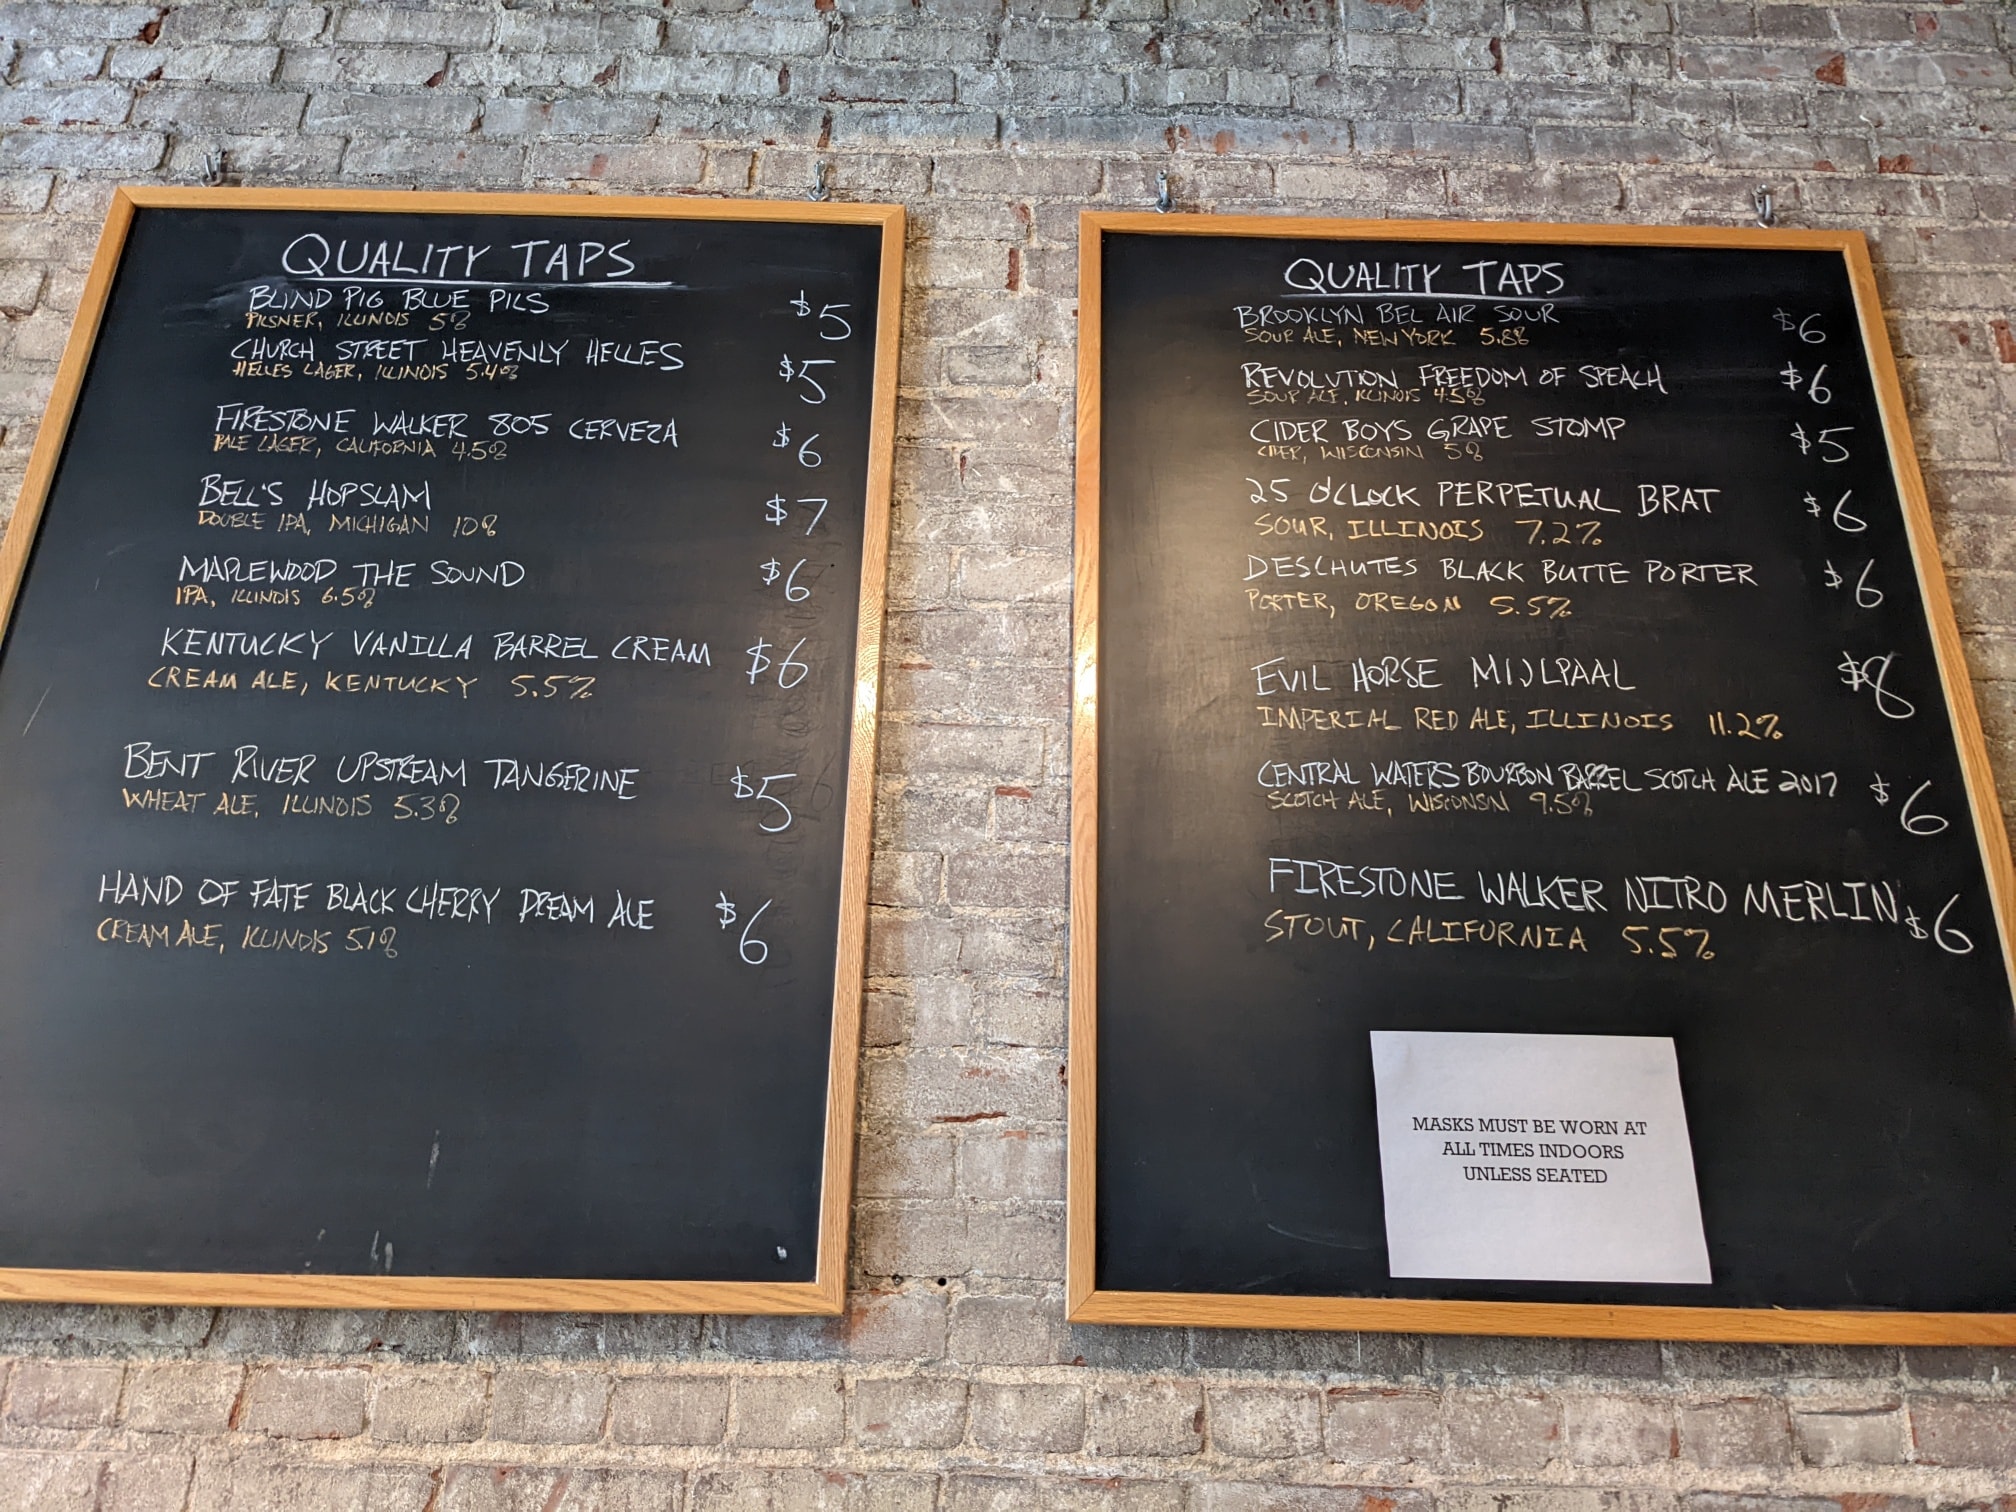 QUALITY TAPS
BLIND PIG BLUE PILS $5
PILSNER, ILLINOIS 5%
CHURCH STREET HEAVENLY HELLES $5
HELLES LAGER, ILLINOIS 5.4%
FIRESTONE WALKER 805 CERVEZA $6
PALE LAGER, CALIFORNIA 4.5%
BELL'S HOPSLAM $7
DOUBLE IPA, MICHIGAN 10%
MAPLEWOOD THE SOUND $6
IPA, ILLINOIS 6.5%
KENTUCKY VANILLA BARREL CREAM $6
CREAM ALE, KENTUCKY 5.5%
BENT RIVER UPSTREAM TANGERINE $5
WHEAT ALE, ILLINOIS 5.3%
HAND OF FATE BLACK CHERRY DREAM ALE $6
CREAM ALE, ILLINOIS 5.1%
QUALITY TAPS
BROOKLYN BEL AIR SOUR $6
SOUR ALE, NEW YORK 5.8%
REVOLUTION FREEDOM OF SPEACH $6
SOUR ALE, ILLINOIS 4.5%
CIDER BOYS GRAPE STOMP $5
CIDER, WISCONSIN 5%
25 O'CLOCK PERPETUAL BRAT $6
SOUR, ILLINOIS 7.2%
DESCHUTES BLACK BUTTE PORTER $6
PORTER, OREGON 5.5%
EVIL HORSE MIJLPAAL $8
IMPERIAL RED ALE, ILLINOIS 11.2%
CENTRAL WATERS BOURBON BARREL SCOTCH ALE 2017 $6
SCOTCH ALE, WISCONSIN 9.5%
FIRESTONE WALKER NITRO MERLIN $6
STOUT, CALIFORNIA 5.5%
MASKS MUST BE WORN AT
ALL TIMES INDOORS
UNLESS SEATED